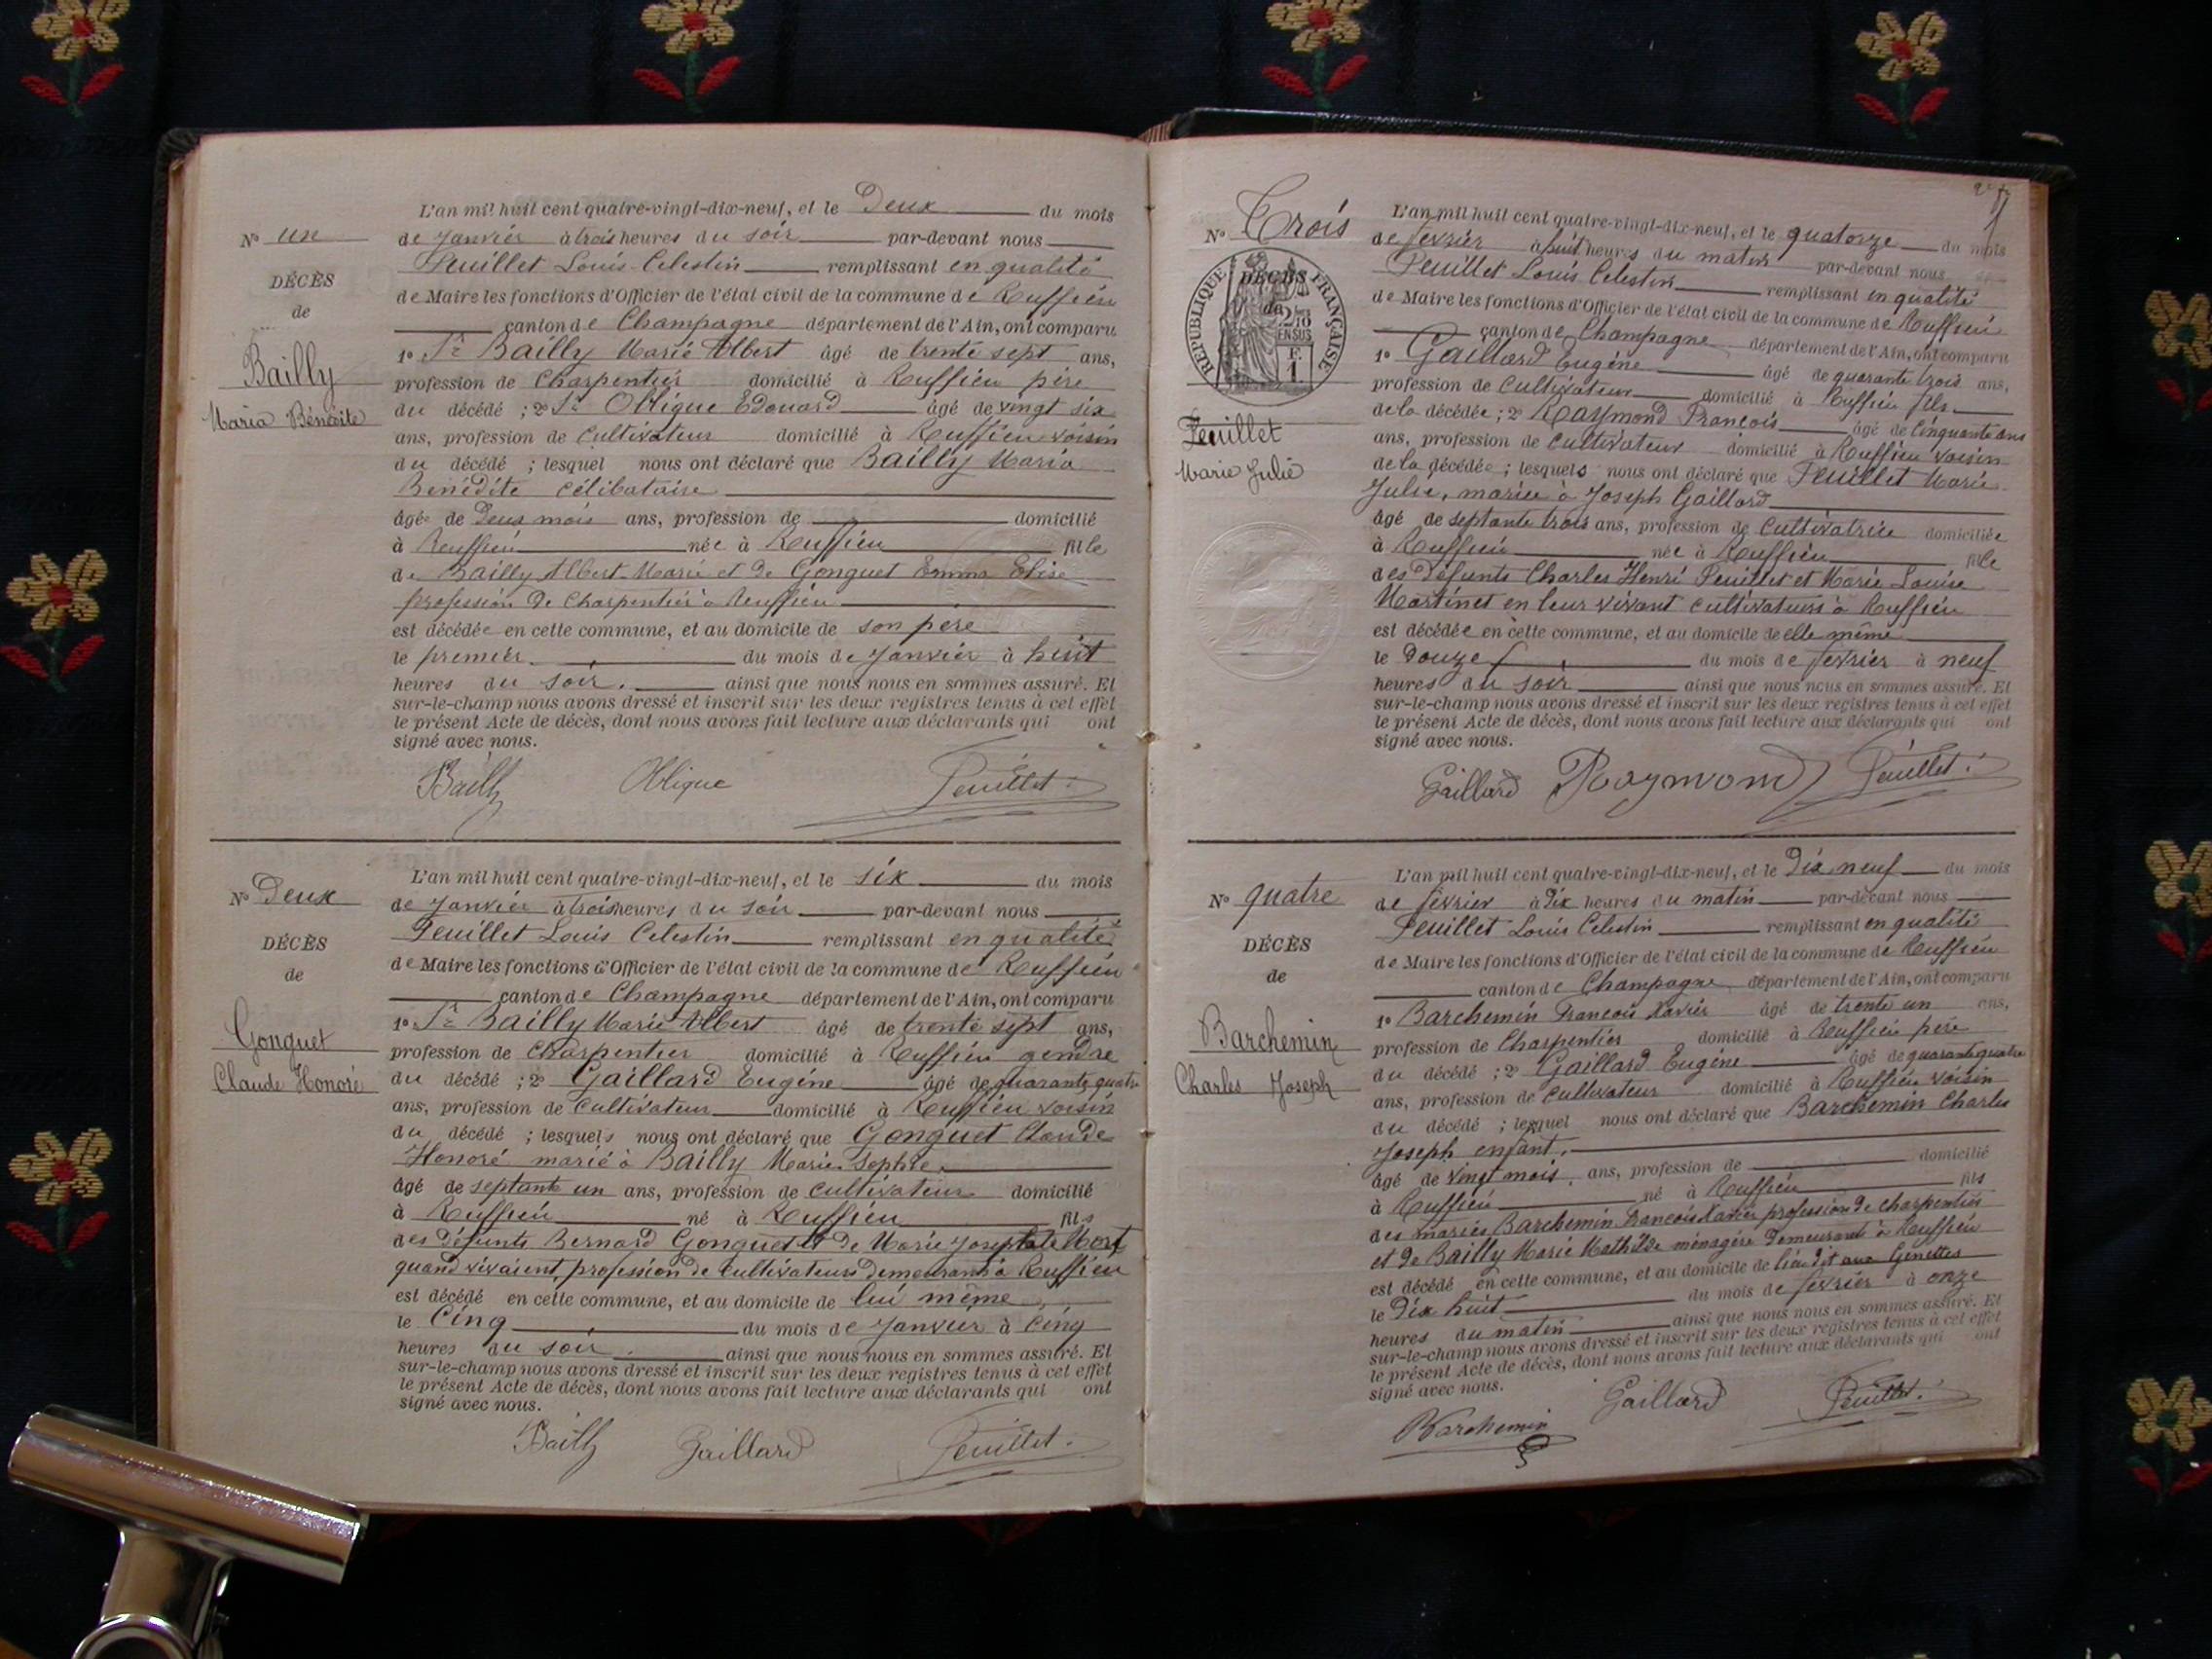 L'an mil huit cent quatre-vingt-dix-neuf, et le Deux du mois
No un
de Janvier à trois heures du soir par-devant nous
Feuillet Louis Celestin remplissant en qualité
DÉCÈS
de Maire les fonctions d'Officier de l'état civil de la commune de Ruffieu
de
canton de Champagne département de l'Ain, ont comparu
Bailly
1o Sr Bailly Marie Albert âgé de trente sept ans,
profession de Charpentier domicilié à Ruffieu père
Maria Bénédite
du décédé ; 2o Sr Oblique Edouard âgé de vingt six
ans, profession de cultivateur domicilié à Ruffieu voisin
du décédé ; lesquel nous ont déclaré que Bailly Maria
Bénédite célibataire
âgée de Deux mois ans, profession de domicilié
à Ruffieu née à Ruffieu fille
de Bailly Albert Marie et de Gonguet Emma Elise
profession de Charpentier à Ruffieu
est décédée en cette commune, et au domicile de son père
le premier du mois de Janvier à huit
heures du soir. ainsi que nous nous en sommes assuré. Et
sur-le-champ nous avons dressé et inscrit sur les deux registres tenus à cet effet
le présent Acte de décès, dont nous avons fait lecture aux déclarants qui ont
signé avec nous.
Bailly Oblique Feuillet
L'an mil huit cent quatre-vingt-dix-neuf, et le six du mois
No Deux
de Janvier à trois heures du soir par-devant nous
Feuillet Louis Celestin remplissant en qualité
DÉCÈS
de Maire les fonctions d'Officier de l'état civil de la commune de Ruffieu
de
canton de Champagne département de l'Ain, ont comparu
Gonguet
1o Sr Bailly Marie Albert âgé de trente sept ans,
profession de Charpentier domicilié à Ruffieu gendre
Claude Honoré
du décédé ; 2o Gaillard Eugéne âgé de quarante quatre
ans, profession de cultivateur domicilié à Ruffieu voisin
du décédé ; lesquels nous ont déclaré que Gonguet Claude
Honoré marié à Bailly Marie Sophie
âgé de septante un ans, profession de cultivateur domicilié
à Ruffieu né à Ruffieu fils
des défunts Bernard Gonguet et de Marie Josephte
quand vivaient, profession de cultivateurs demeurant à Ruffieu
est décédé en cette commune, et au domicile de lui même
le Cinq du mois de Janvier à cinq
heures du soir. ainsi que nous nous en sommes assuré. Et
sur-le-champ nous avons dressé et inscrit sur les deux registres tenus à cet effet
le présent Acte de décès, dont nous avons fait lecture aux déclarants qui ont
signé avec nous.
Bailly Gaillard Feuillet
L'an mil huit cent quatre-vingt-dix-neuf, et le quatorze du mois
No Trois
de fevrier à huit heures du matin par-devant nous
Feuillet Louis Celestin remplissant en qualité
DÉCÈS
de Maire les fonctions d'Officier de l'état civil de la commune de Ruffieu
de
RÉPUBLIQUE FRANÇAISE
2/10
EN SUS
F.
1
canton de Champagne département de l'Ain, ont comparu
1o Gaillard Eugéne âgé de quarante trois ans,
profession de cultivateur domicilié à Ruffieu fils
Feuillet
de la décédée ; 2o Raymond François âgé de cinquante ans
ans, profession de cultivateur domicilié à Ruffieu voisin
Marie Julie
de la décédée ; lesquels nous ont déclaré que Feuillet Marie
Julie, mariée à Joseph Gaillard
âgé de septante trois ans, profession de cultivatrice domiciliée
à Ruffieu née à Ruffieu fille
des Défunts Charles Henri Feuillet et Marie Louise
Martinet en leur vivant cultivateurs à Ruffieu
est décédée en cette commune, et au domicile de elle même
le Douze du mois de fevrier à neuf
heures du soir ainsi que nous nous en sommes assuré. Et
sur-le-champ nous avons dressé et inscrit sur les deux registres tenus à cet effet
le présent Acte de décès, dont nous avons fait lecture aux déclarants qui ont
signé avec nous.
Gaillard Raymond Feuillet
L'an mil huit cent quatre-vingt-dix-neuf, et le Dix neuf du mois
No quatre
de fevrier à dix heures du matin par-devant nous
Feuillet Louis Celestin remplissant en qualité
DÉCÈS
de Maire les fonctions d'Officier de l'état civil de la commune de Ruffieu
de
canton de Champagne département de l'Ain, ont comparu
Barchemin
1o Barchemin François Xavier âgé de trente un ans,
profession de Charpentier domicilié à Ruffieu père
Charles Joseph
du décédé ; 2o Gaillard Eugéne âgé de quarante quatre
ans, profession de cultivateur domicilié à Ruffieu voisin
du décédé ; lesquel nous ont déclaré que Barchemin Charles
Joseph enfant.
âgé de vingt mois, ans, profession de domicilié
à Ruffieu né à Ruffieu fils
des mariés Barchemin François Xavier profession de charpentier
et de Bailly Marie Mathilde ménagère demeurant à Ruffieu
est décédé en cette commune, et au domicile de lieu dit aux Genettes
le Dix huit du mois de fevrier à onze
heures du matin ainsi que nous nous en sommes assuré. Et
sur-le-champ nous avons dressé et inscrit sur les deux registres tenus à cet effet
le présent Acte de décès, dont nous avons fait lecture aux déclarants qui ont
signé avec nous.
Barchemin Gaillard Feuillet